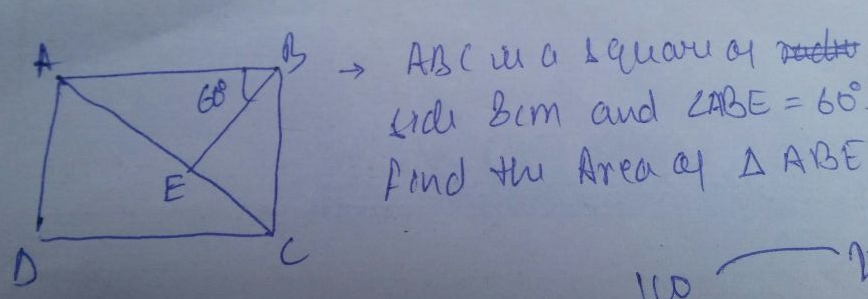 A B → ABC is a square of
60° side 8cm and ∠ABE = 60°.
E Find the Area of Δ ABE
D C